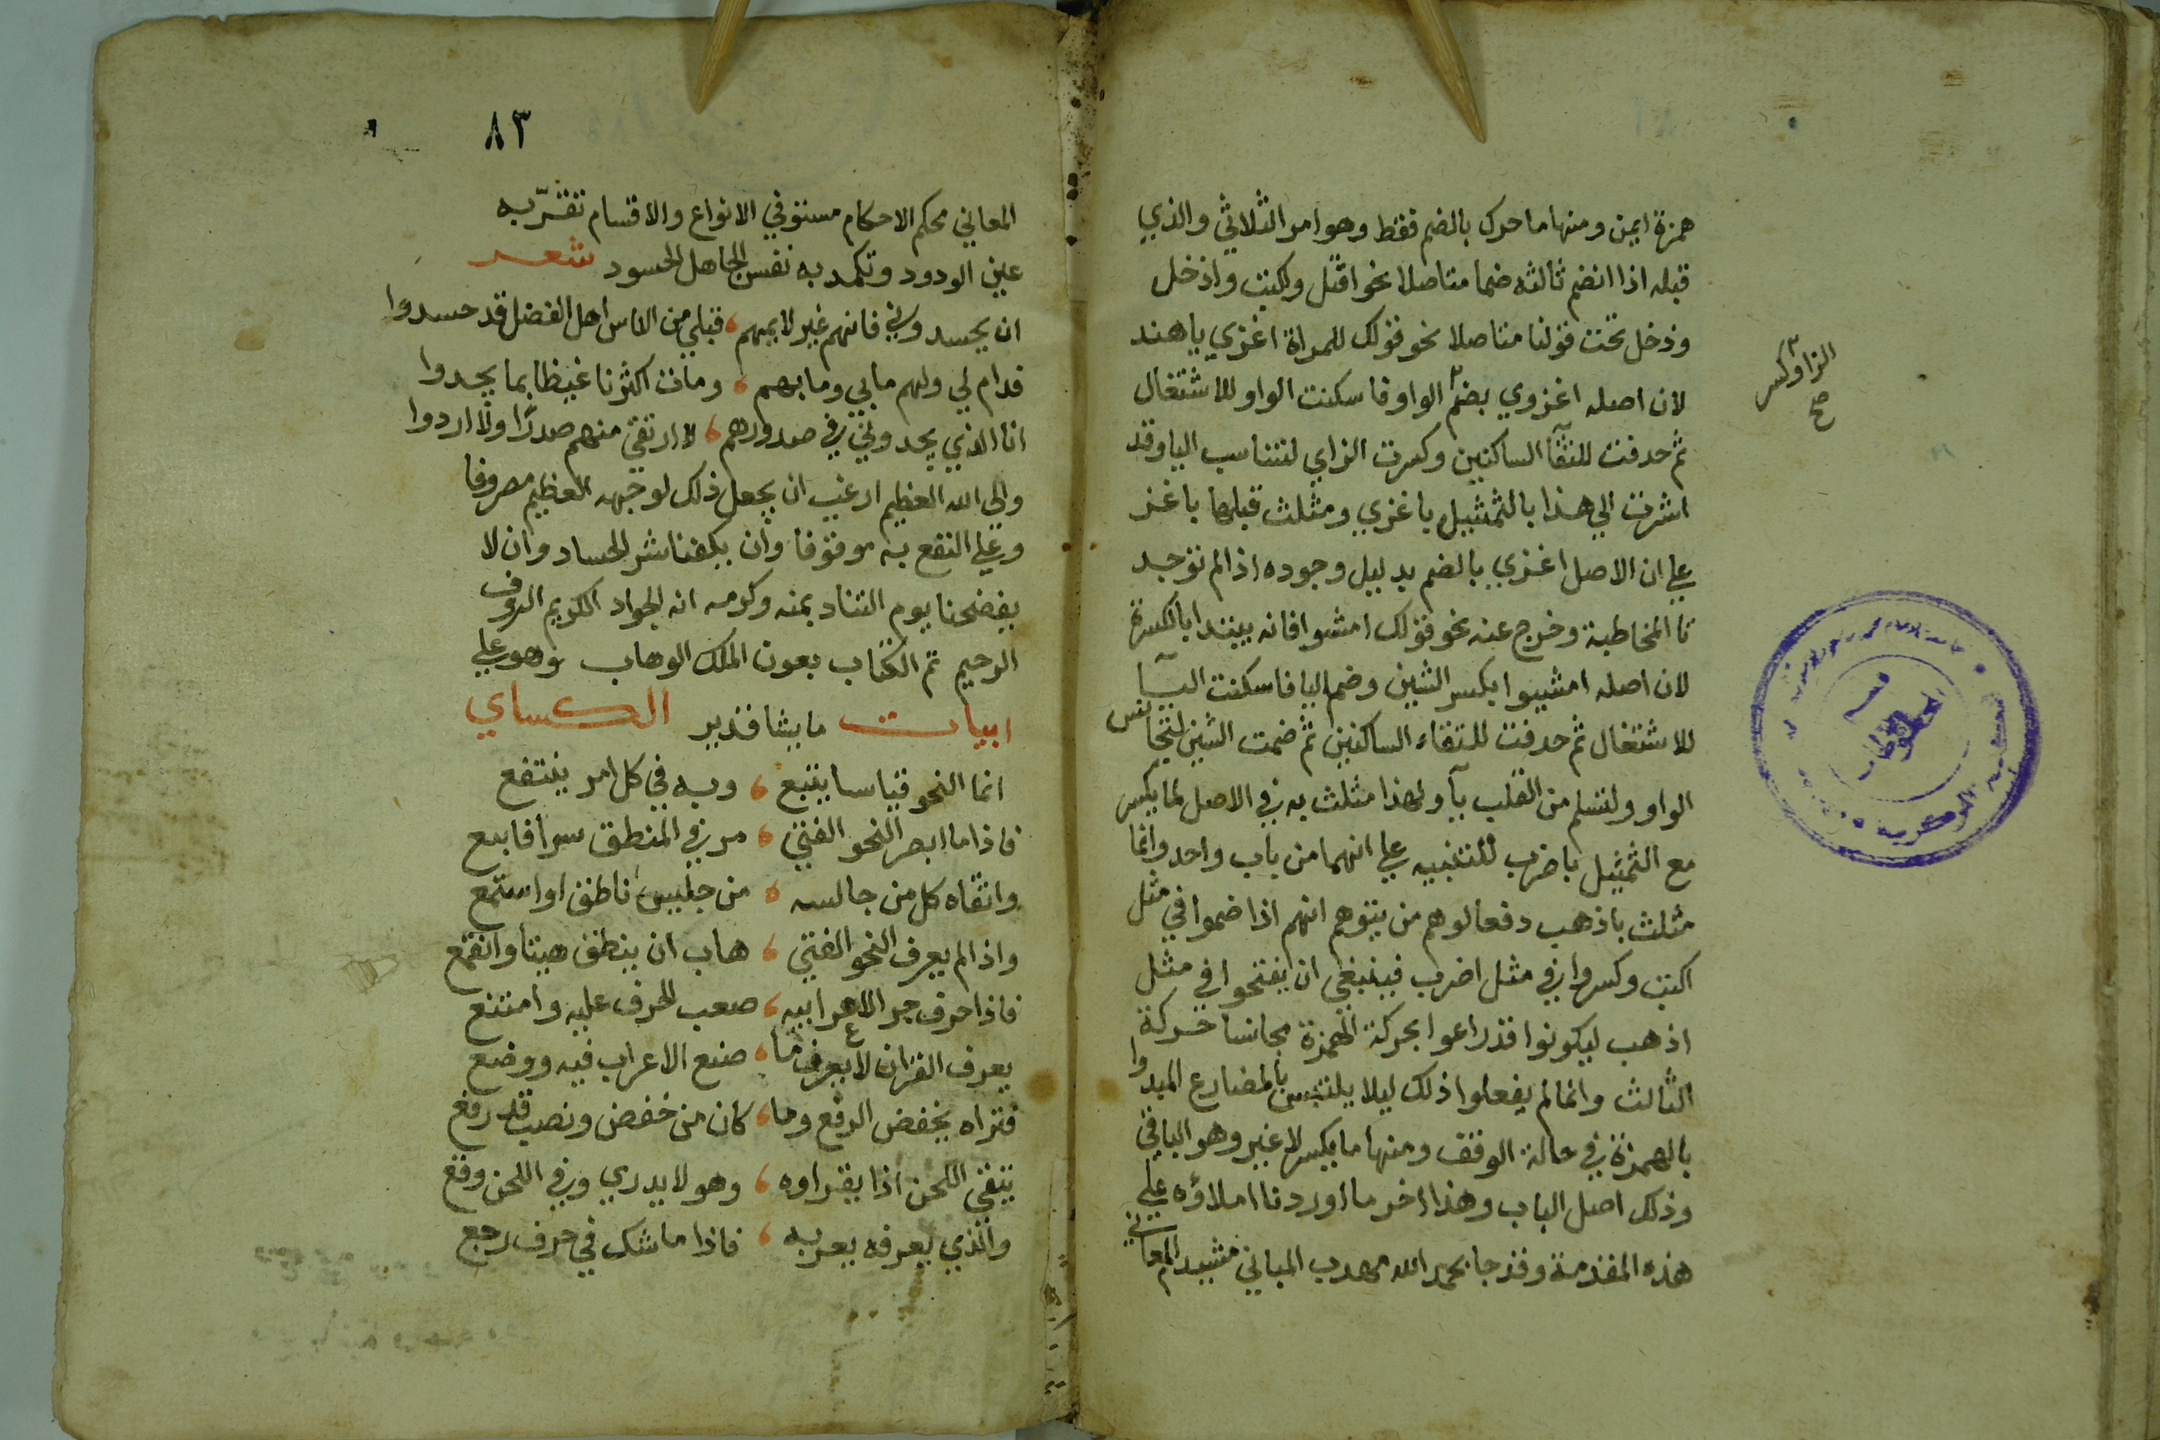 همزة ايمن ومنها ما حرك بالضم فقط وهو امر الثلاثي والذي
قبله اذا انضم ثالثه ضما متاصلا نحو اقتل واكتب وادخل
ودخل تحت قولنا متاصلا نحو قولك للمراة اغزي يا هند
لان اصله اغزوي بضم الواو فاسكنت الواو للاشتغال
ثم حدفت للتقآ الساكنين وكسرت الزاي لتتناسب اليا وقد
اشرت الي هذا بالتمثيل باغزي ومثلت قبلها باغز
علي ان الاصل اغزي بالضم بدليل وجوده اذا لم توجد
تا المخاطبة وخرج عنه نحو قولك امشوا فانه يبتدا بالكسرة
لان اصله امشيوا بكسر الشين وضم اليا فاسكنت اليآ
للاشتغال ثم حدفت للتقاء الساكنين ثم ضمت الشين لتجانس
الواو ولتسلم من القلب يآ ولهذا مثلت به في الاصل لما يكسر
مع التمثيل باضرب للتنبيه علي انهما من باب واحد وانما
مثلت باذهب دفعا لوهم من يتوهم انهم اذا ضموا في مثل
اكتب وكسروا في مثل اضرب فينبغي ان يفتحوا في مثل
اذهب ليكونوا قد راعوا بحركة الهمزة مجانسا حركة
الثالث وانما لم يفعلوا ذلك ليلا يلتبس بالمضارع المبدوا
بالهمزة في حالة الوقف ومنها ما يكسر لا غير وهو الباقي
وذلك اصل الباب وهذا اخر ما اوردنا املاؤه علي
هذه المقدمة وقد جا بحمد الله مهدب المباني مشيد المعاني
الزا وكسر
صح
٨٣
المعاني محكم الاحكام مستوفي الانواع والاقسام تقرّ به
عين الودود وتكمد به نفس الجاهل الحسود شعر
ان يحسدوني فانهم غير لايمهم قبلي من الناس اهل الفضل قد حسدوا
فدام لي ولهم ما بي وما بهم ومات اكثرنا غيظا بما يجدوا
انا الذي يجدوني في صدورهم لا ارتقي منهم صدرًا ولا اردوا
والي الله العظيم ارغب ان يجعل ذلك لوجهه العظيم مصروفا
وعلي النفع به موقوفا وان يكفنا شر الحساد وان لا
يفضحنا يوم التناد بمنه وكرمه انه الجواد الكريم الروف
الرحيم تم الكتاب بعون الملك الوهاب وهو علي
ما يشا قدير ابيات الكساي
انما النحو قياسا يتبع وبه في كل امر ينتفع
فاذا ما ابصر النحو الفتي مر في المنطق سرا فابسع
واتقاه كل من جالسه من جليس ناطق او استمع
واذا لم يعرف النحو الفتي هاب ان ينطق هيتا وانقمع
فاذا حرف جر الاعرابيه صعب الحرف عليه وامتنع
يعرف القران لا يعرف ما صنع الاعراب فيه ووضع
فتراه يخفض الرفع وما كان من خفض ونصب قد رفع
يتقي اللحن اذا يقراوه وهو لا يدري وفي اللحن وقع
والذي يعرفه يعربه فاذا ما شك في حرف رجع